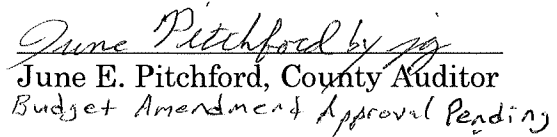 June Pitchford by jg
June E. Pitchford, County Auditor
Budget Amendment Approval Pending